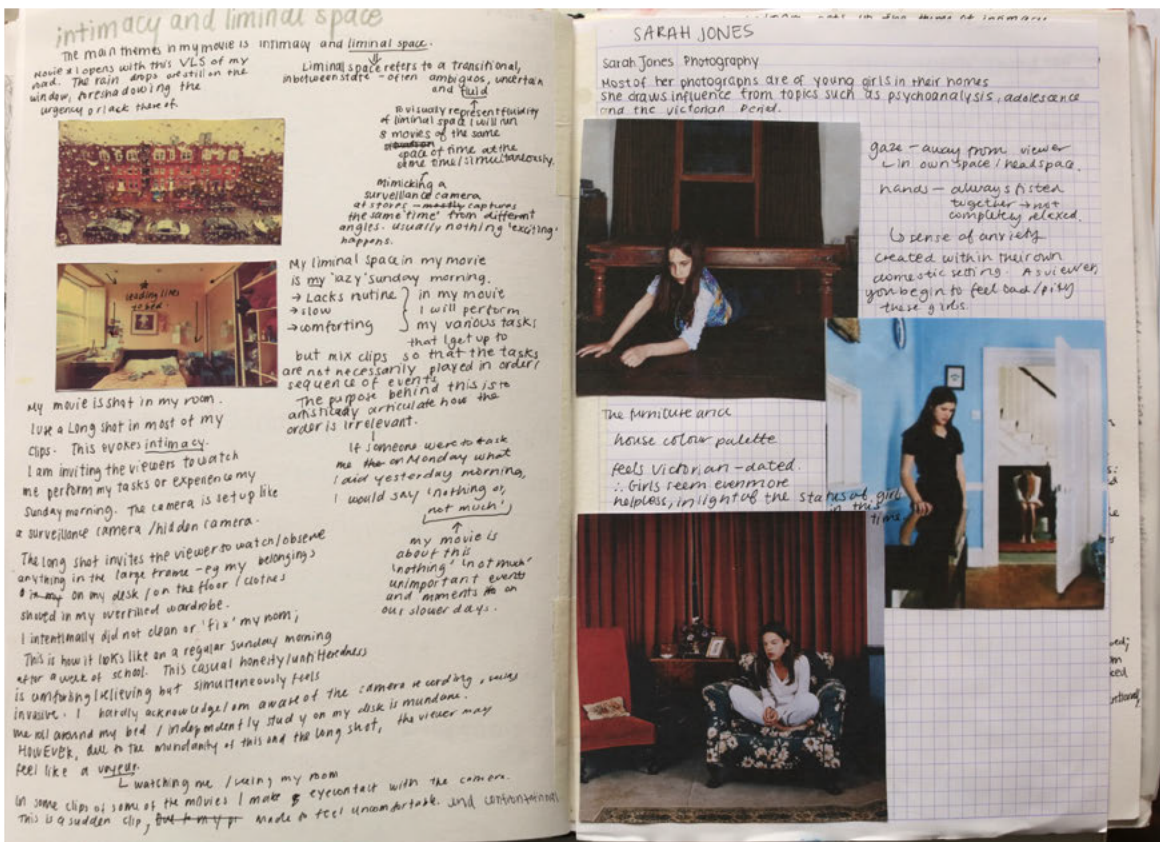 intimacy and liminal space
The main themes in my movie is intimacy and liminal space.
Movie 1 opens with this VLS of my
road. The rain drops are still on the
window, foreshadowing the
urgency or lack there of.
Liminal space refers to a transitional,
inbetween state - often ambiguos, uncertain
and fluid
to visually represent fluidity
of liminal space I will run
8 movies of the same
space of time at the
same time/simultaneously.
mimicking a
surveillance camera
at stores - mostly captures
the same 'time' from different
angles. usually nothing 'exciting'
happens.
leading lines
to bed.
My liminal space in my movie
is my 'lazy' sunday morning.
→ Lacks routine
→ slow
→ comforting
in my movie
I will perform
my various tasks
that I get up to
but mix clips so that the tasks
are not necessarily played in order/
sequence of events
The purpose behind this is to
artistically articulate how the
order is irrelevant.
If someone were to ask
me on Monday what
I did yesterday morning,
I would say 'nothing or,
not much'
my movie is
about this
'nothing' 'not much'
unimportant events
and moments on
our slower days.
My movie is shot in my room.
I use a Long shot in most of my
clips. This evokes intimacy.
I am inviting the viewers to watch
me perform my tasks or experience my
Sunday morning. The camera is set up like
a surveillance camera /hidden camera.
The long shot invites the viewer to watch/observe
anything in the large frame - eg my belongings
on my desk / on the floor / clothes
shoved in my overfilled wardrobe.
I intentionally did not clean or 'fix' my room;
This is how it looks like on a regular Sunday morning
after a week of school. This casual honesty/unfilteredness
is comforting/relieving but simultaneously feels
invasive. I hardly acknowledge/am aware of the camera recording,
me roll around my bed / independently study on my disk is mundane.
HOWEVER, due to the mundanity of this and the long shot, the viewer may
feel like a voyeur.
watching me / using my room
In some clips of some of the movies I make eyecontact with the camera.
This is a sudden clip, made to feel uncomfortable. and confrontational
SARAH JONES
Sarah Jones Photography
Most of her photographs are of young girls in their homes
She draws influence from topics such as psychoanalysis, adolescence
and the victorian period.
gaze - away from viewer
in own space / headspace.
hands - always fisted
together → not
completely relexed.
sense of anxiety
created within their own
domestic setting. As viewer,
you begin to feel bad/pity
these girls.
The furniture and
house colour palette
feels Victorian - dated.
∴ Girls seem even more
helpless, in light of the status of girls
in this
time.